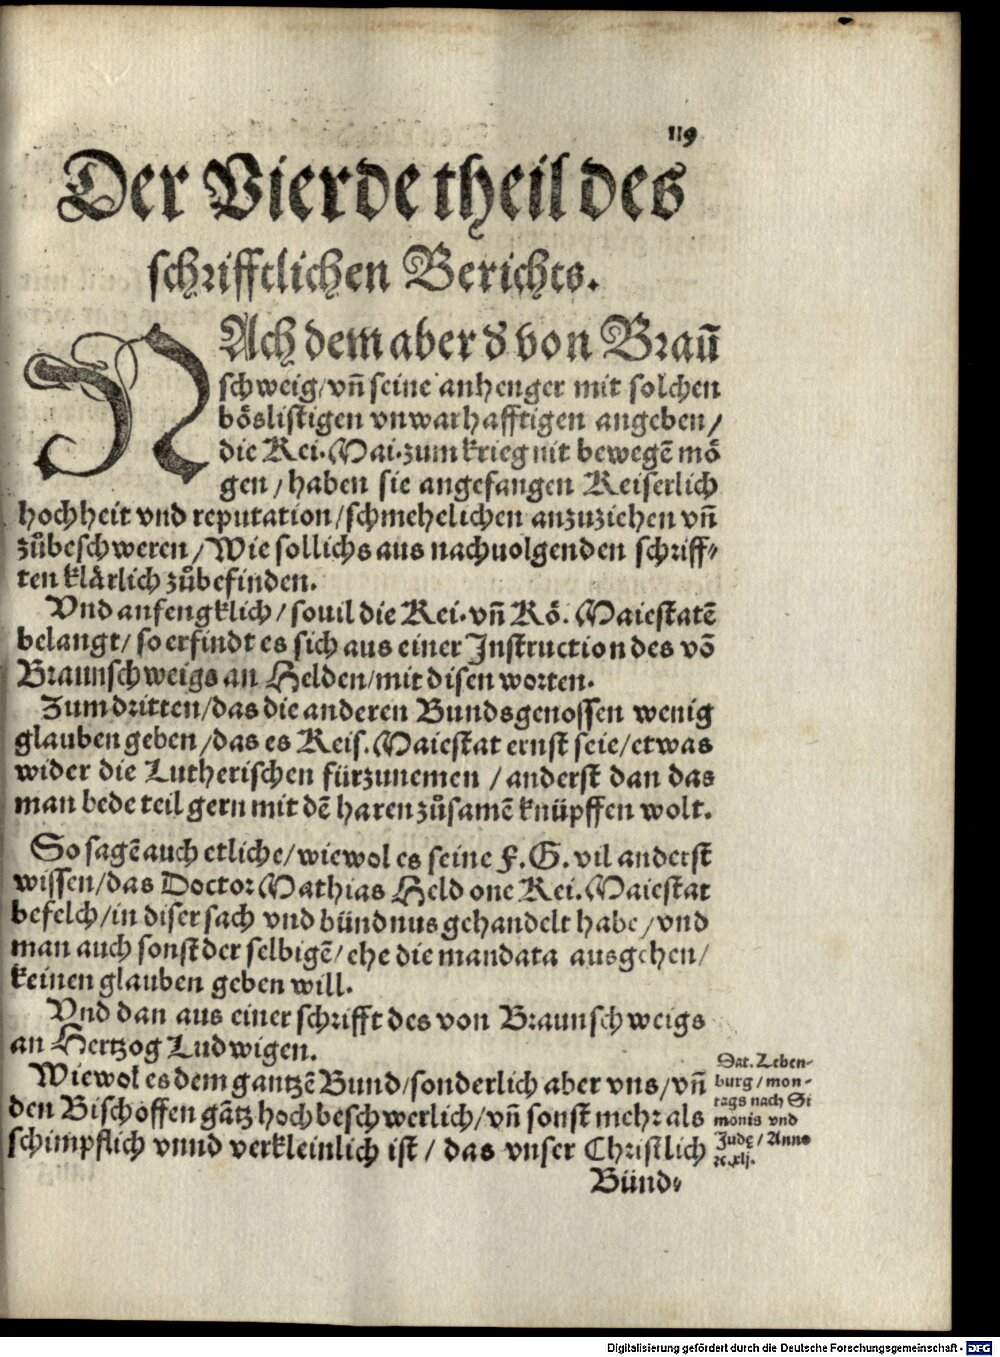 119
Der Vierde theil des
schrifftlichen Berichts.
NAch dem aber d̕ von Braũ
schweig/vñ seine anhenger mit solchen
böslistigen vnwarhafftigen angeben/
die Kei.Mai.zum krieg nit bewegē mö
gen/haben sie angefangen Keiserlich
hochheit vnd reputation/schmehelichen anzuziehen vñ
zůbeschweren/Wie sollichs aus nachuolgenden schriff⸗
ten klärlich zůbefinden.
Vnd anfengklich/souil die Kei.vñ Kö. Maiestatē
belangt/so erfindt es sich aus einer Instruction des vō
Braunschweigs an Helden/mit disen worten.
Zum dritten/das die anderen Bundsgenossen wenig
glauben geben/das es Keis.Maiestat ernst seie/etwas
wider die Lutherischen fürzunemen/anderst dan das
man bede teil gern mit dē haren zůsamē knüpffen wolt.
So sagē auch etliche/wiewol es seine F.G.vil anderst
wissen/das Doctor Mathias Held one Kei.Maiestat
befelch/in diser sach vnd bündnus gehandelt habe/vnd
man auch sonst der selbigē/ehe die mandata ausgehen/
keinen glauben geben will.
Vnd dan aus einer schrifft des von Braunschweigs
an Hertzog Ludwigen.
Wiewol es dem gantzē Bund/sonderlich aber vns/vñ
den Bischoffen gātz hochbeschwerlich/vñ sonst mehr als
schimpflich vnnd verkleinlich ist/das vnser Christlich
Bünd⸗
Dat.Leben⸗
burg/mon⸗
tags nach Si
monis vnd
Jude/Anno
ꝛc.xlj.
Digitalisierung gefördert durch die Deutsche Forschungsgemeinschaft - DFG